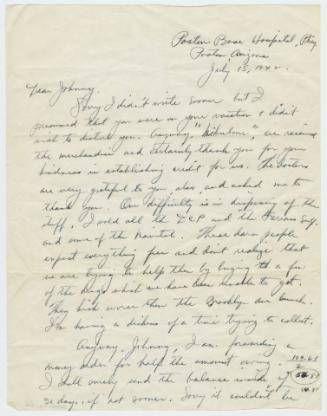 Poston Base Hospital, Phcy
Poston Arizona
July 15, 1942.
Dear Johnny,
Sorry I didn't write sooner but I
presumed that you were on your vacation & didn't
wish to disturb you. Anyway, we received
the merchandise and certainly thank you for your
kindness in establishing credit for us. The doctors
are very grateful to you, also, and asked me to
thank you. Our difficulty is in disposing of the
stuff. I sold all the DCP and the Ferrous Sulf.
and some of the Navitol. These darn people
expect everything free and don't realize that
we are trying to help them by buying a few
of the drugs which we have been unable to get.
They kick worse than the Brooklyn bunch.
I'm having a dickens of a time trying to collect.
Anyway, Johnny, I am forwarding a
money order for half the amount owing.
I shall surely send the balance within
30 days, if not sooner. Sorry it couldn't be